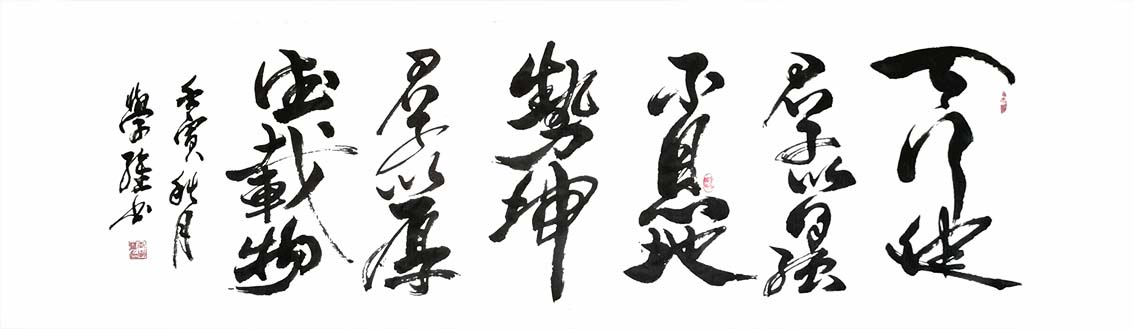 天行健
君子以自强
不息地
势坤
君子以厚
德载物
壬寅秋月
学隆书